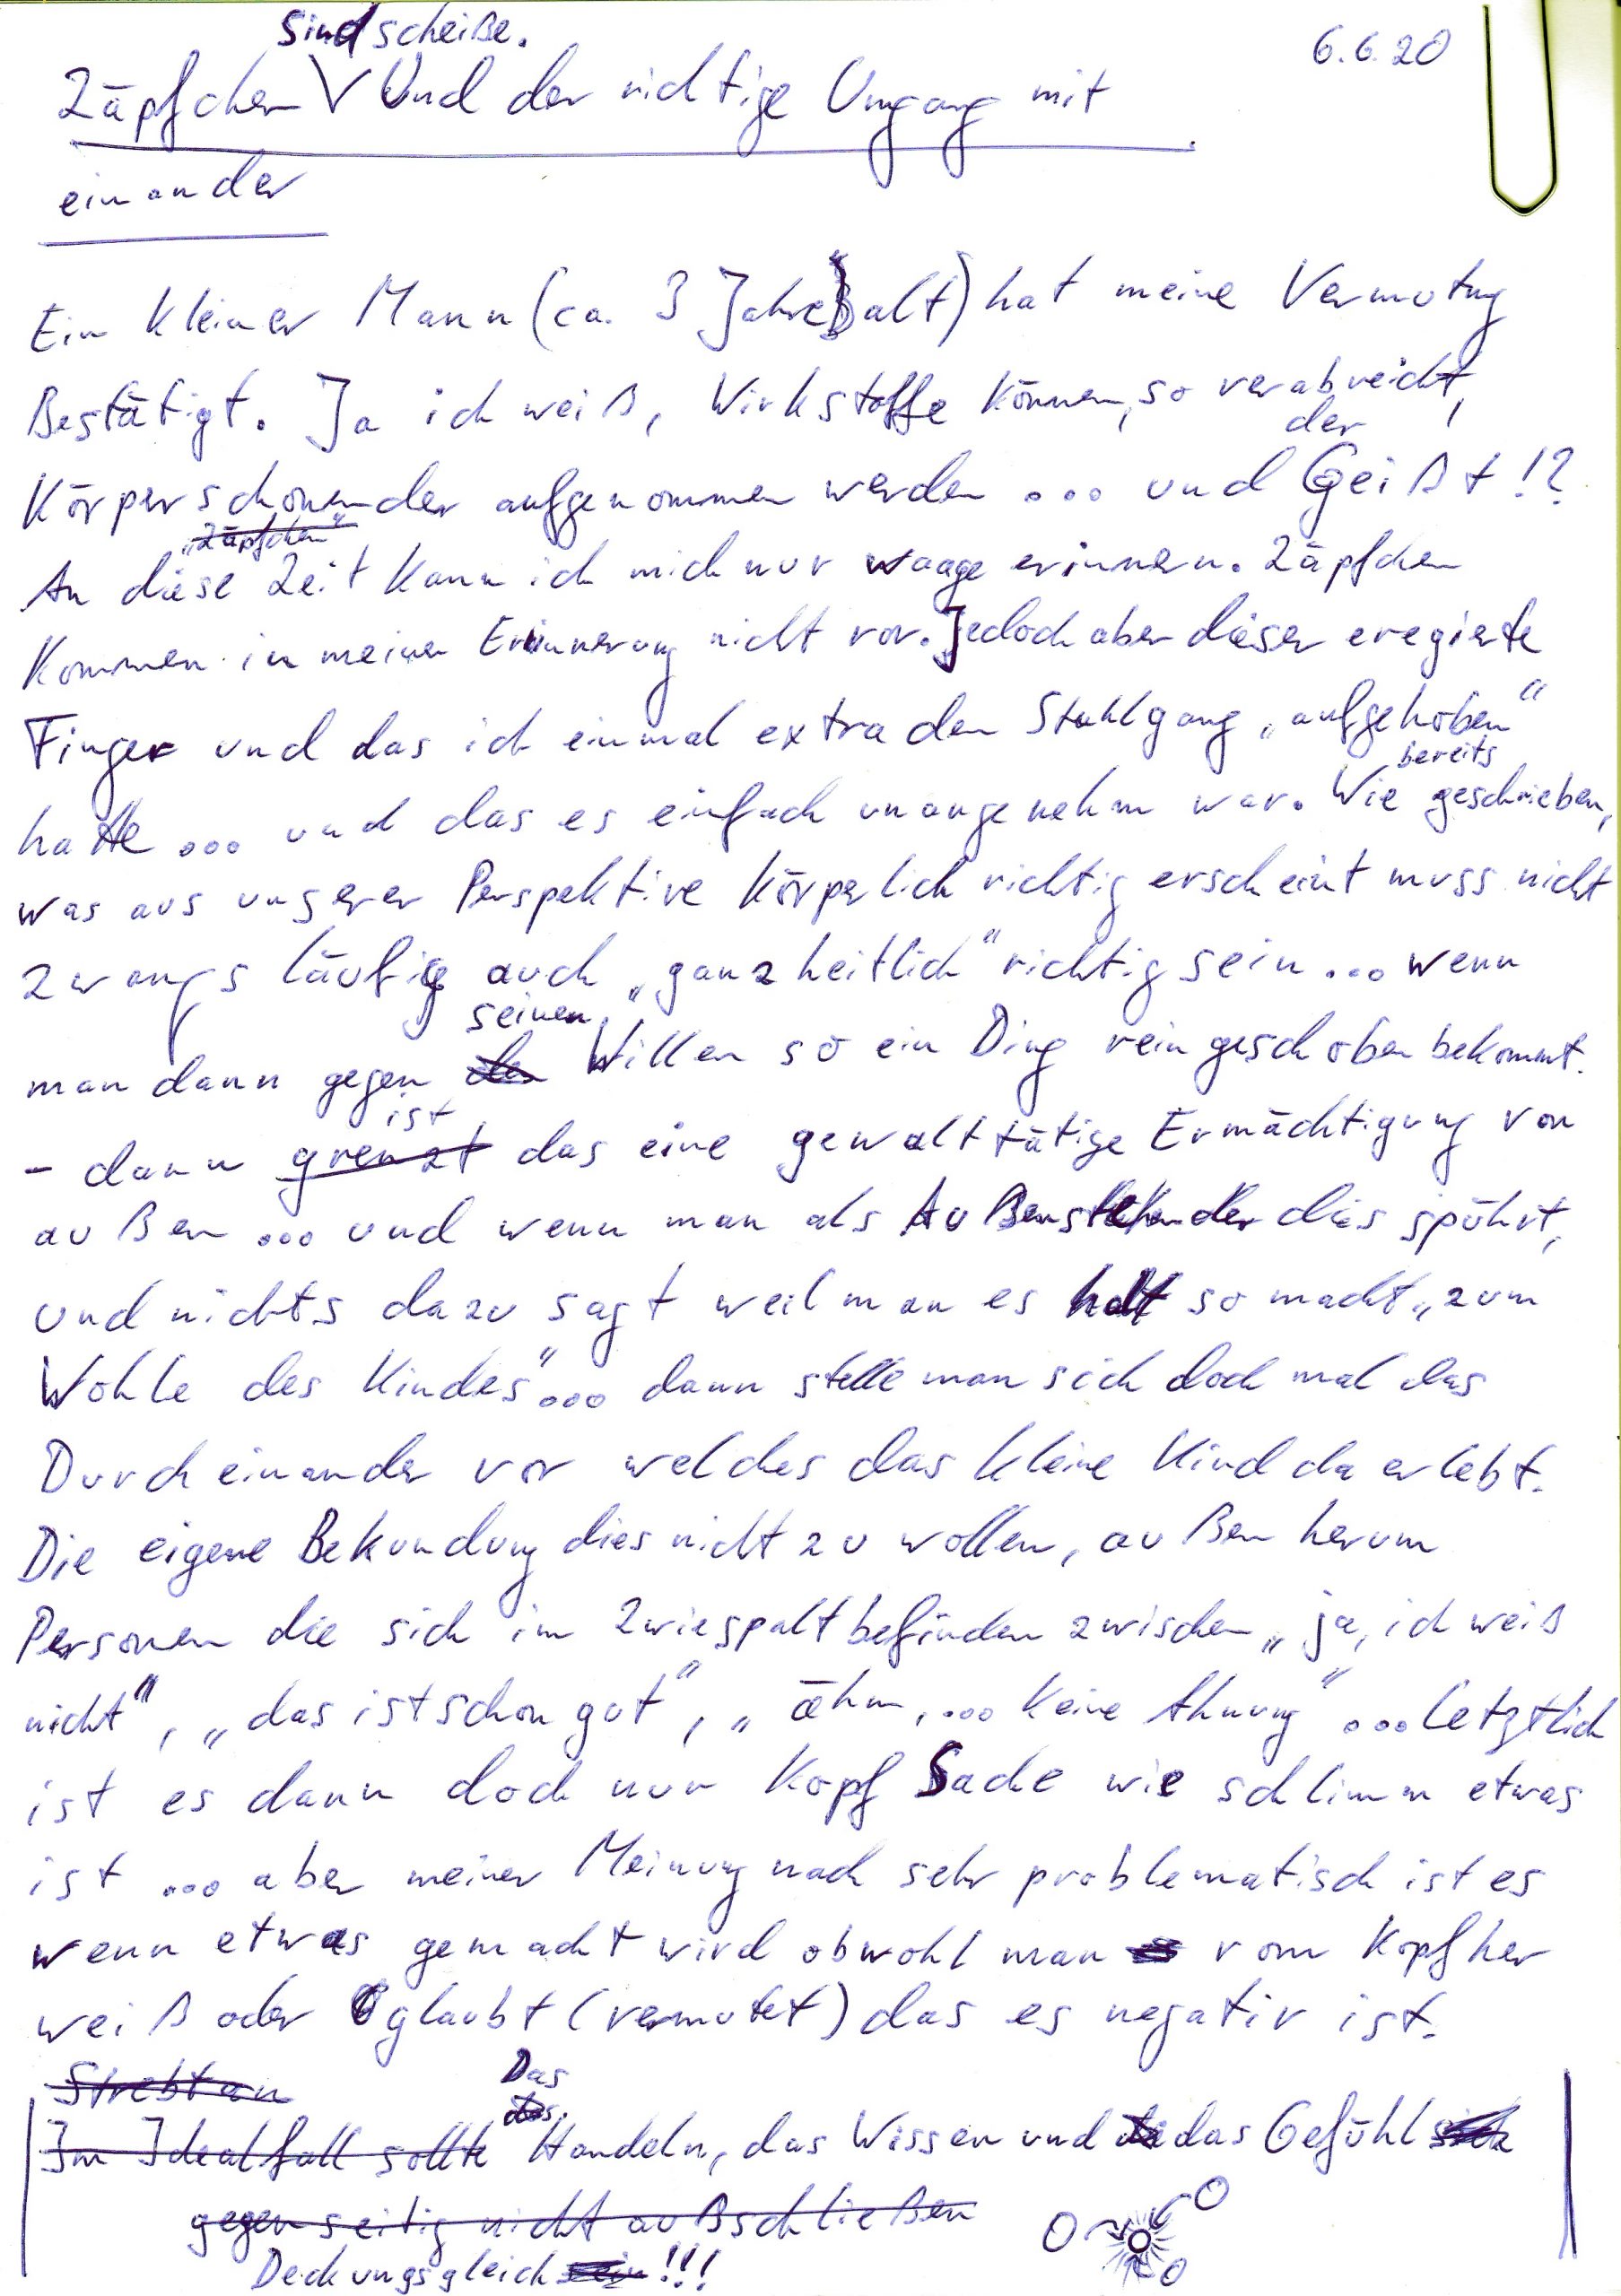 6.6.20
sind scheiße.
Zäpfchen V Und der richtige Umgang mit
einander
Ein kleiner Mann (ca. 3 Jahre alt) hat meine Vermutung
Bestätigt. Ja ich weiß, Wirkstoffe können, so verabreicht,
der
Körperschonender aufgenommen werden ... und Geißt!?
"Zäpfchen"
An diese Zeit kann ich mich nur waage erinnern. Zäpfchen
Kommen in meiner Erinnerung nicht vor. Jedoch aber dieser eregierte
Finger und das ich einmal extra den Stuhlgang „aufgehoben“
bereits
hatte ... und das es einfach unangenehm war. Wie geschrieben,
was aus unserer Perspektive körperlich richtig erscheint muss nicht
zwangsläufig auch „ganzheitlich“ richtig sein ... wenn
seinen
man dann gegen den Willen so ein Ding reingeschoben bekommt.
ist
- dann grenzt das eine gewalttätige Ermächtigung von
außen ... und wenn man als Außenstehender dies spührt,
und nichts dazu sagt weil man es halt so macht „zum
Wohle des Kindes“ ... dann stelle man sich doch mal das
Durcheinander vor welches das kleine Kind da erlebt.
Die eigene Bekundung dies nicht zu wollen, außen herum
Personen die sich im Zwiespalt befinden zwischen „ja, ich weiß
nicht“, „das ist schon gut“, „ähm, ... keine Ahnung“ ... letztlich
ist es dann doch nur Kopf Sache wie schlimm etwas
ist ... aber meiner Meinung nach sehr problematisch ist es
wenn etwas gemacht wird obwohl man vom Kopf her
weiß oder glaubt (vermutet) das es negativ ist.
Strebt an
Das
das
Im Idealfall sollte Handeln, das Wissen und das Gefühl sich
gegenseitig nicht außschließen
Deckungsgleich sein!!!